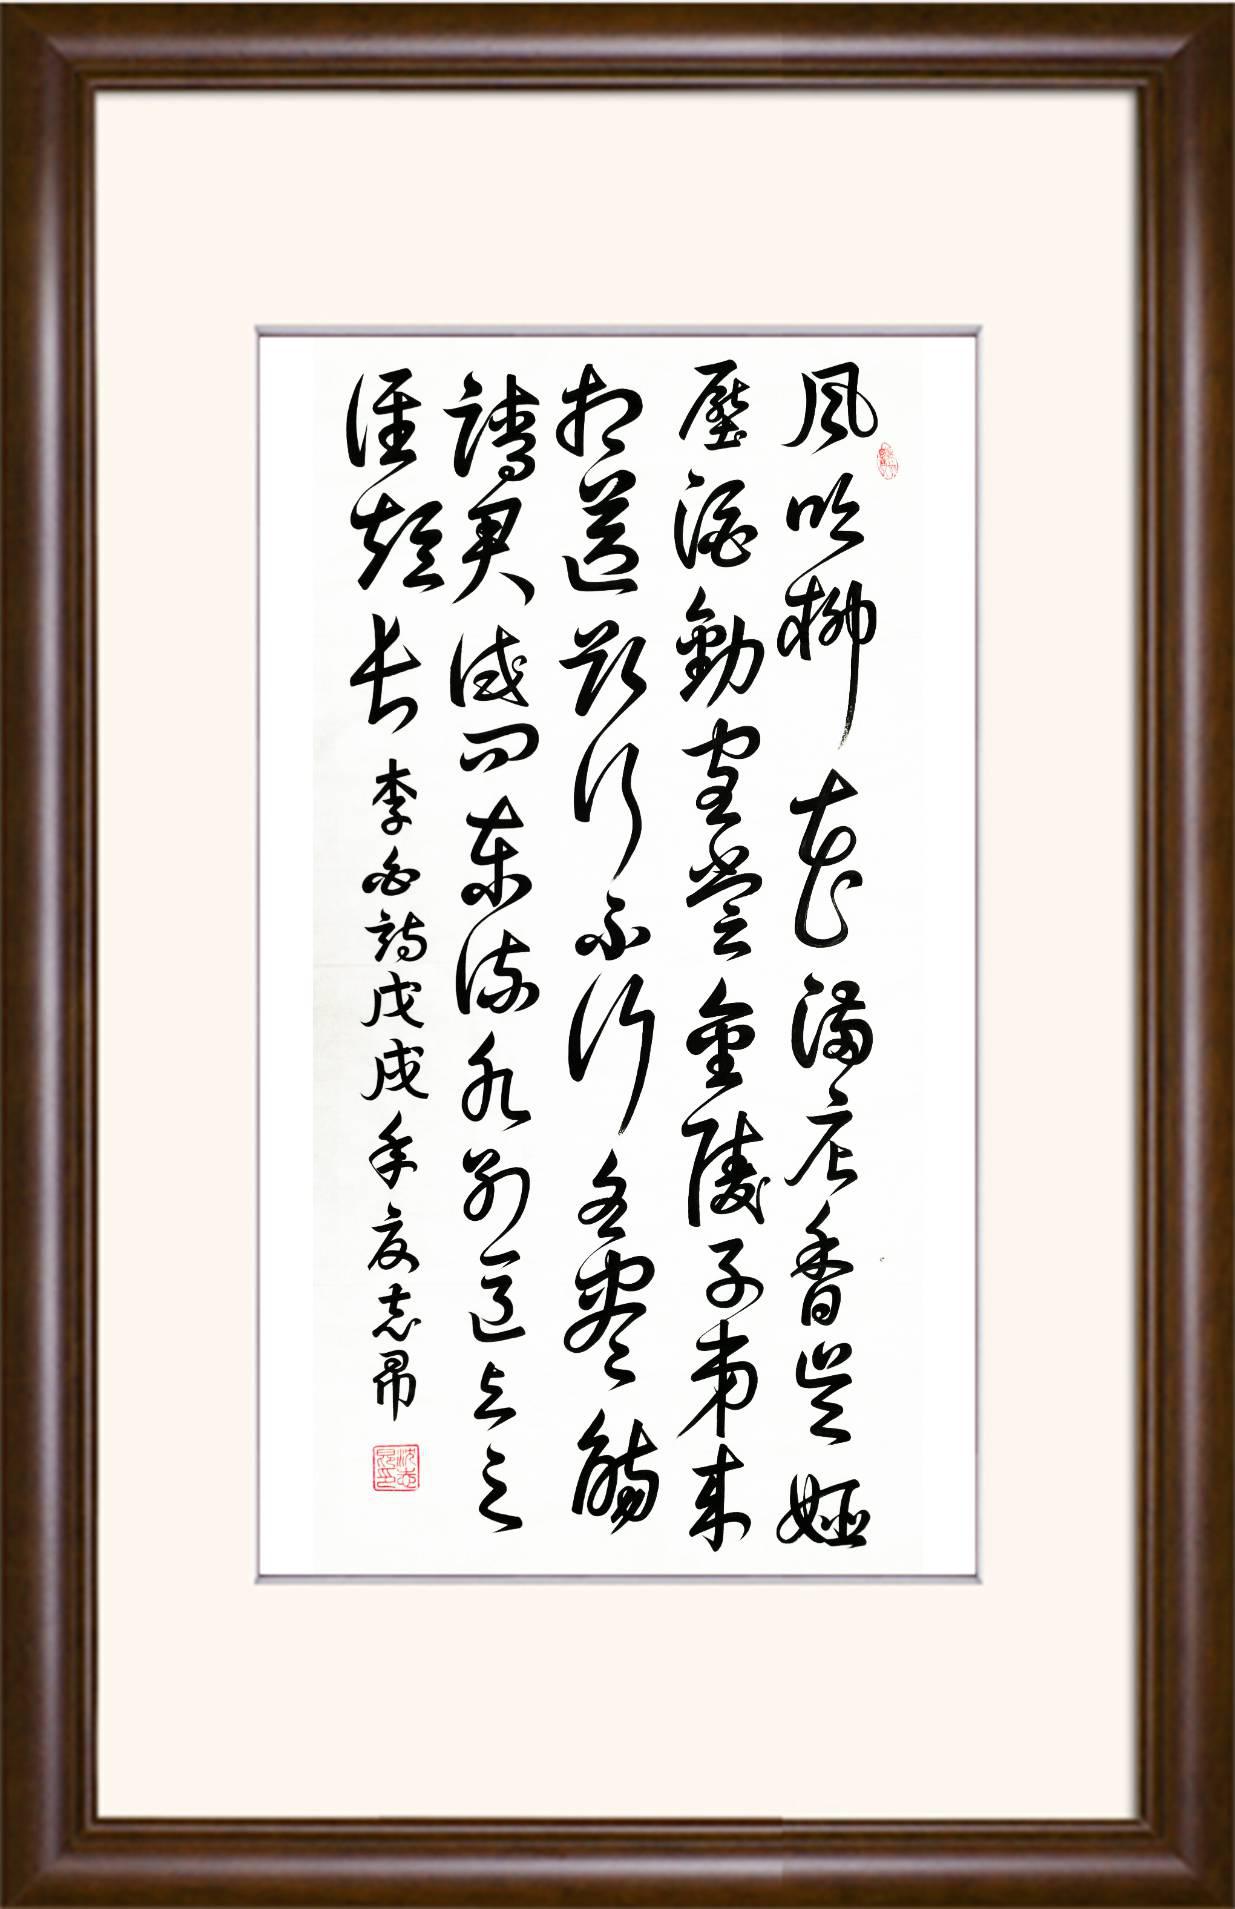 風吹柳花滿店香吳姬
壓酒勸客嘗金陵子弟来
相送欲行不行各盡觴
請君試問東流水別意与之
誰短長 李白詩戊戌年夏志昂
沈志昂印